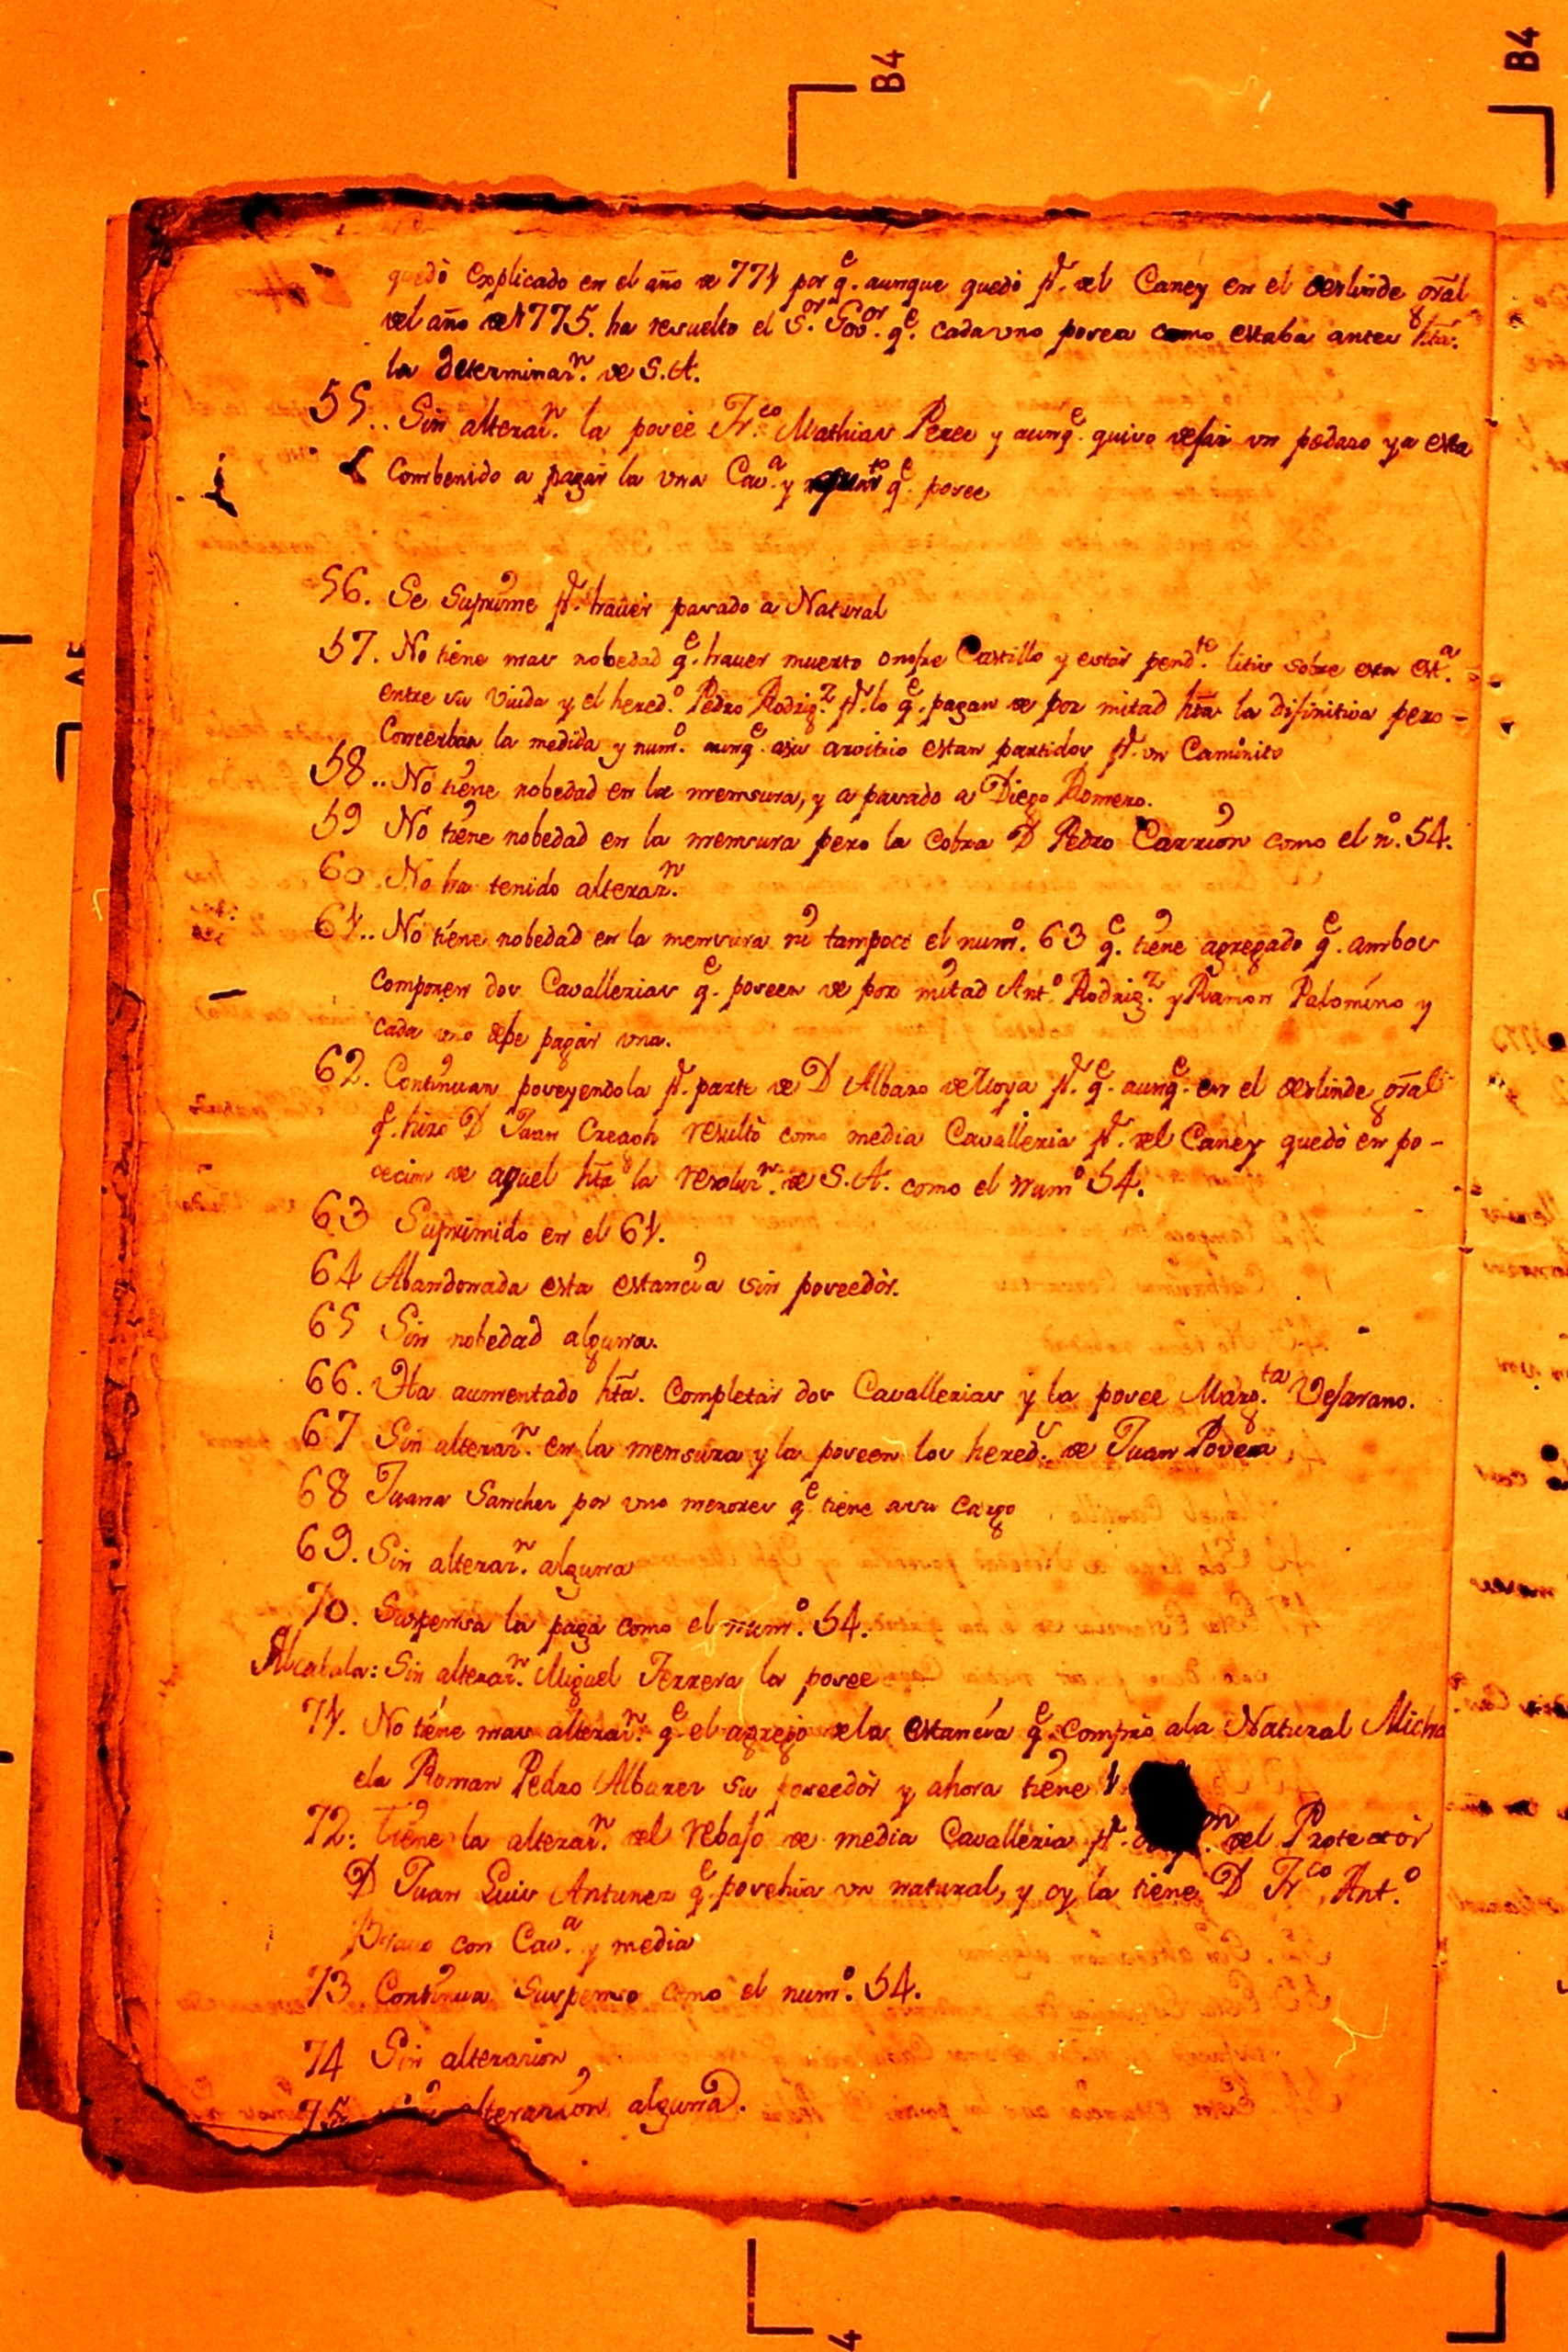 B4
B4
quedò explicado en el año de 771 por q.e aunque quedò p.r del Caney en el deslinde gral
del año de 1775. ha resuelto el S.or Gov.or q.e cada uno posea como estaba antes hta.
la determinaz.n de S.A.
55.. Sin alteraz.n la poseè Fr.co Mathias Perez y aunq.e quiso dejar un pedaso ya esta
Combenido a pagar la una Cav.a y q.e posee
56. Se Suprime p.r haver pasado a Natural
57. No tiene mas nobedad q.e haver muerto onofre Castillo y estàr pend.te litis sobre esta est.a
entre su Viuda y el hered.o Pedro Rodrig.z p.r lo q.e pagan de por mitad hta la difinitiva pero -
Conserban la medida y num.o aunq.e asu arvitrio estan partidos p.r un Caminito
58.. No tiene nobedad en la mensura, y a pasado a Diego Romero.
59 No tiene nobedad en la mensura pero la Cobra D Pedro Carrion como el n.o 54.
60 No ha tenido alteraz.n
61.. No tiene nobedad en la mensura ni tampoco el num.o 63 q.e tiene agregado q.e ambos
componen dos Cavallerias q.e poseen de por mitad Ant.o Rodrig.z y Ramon Palomino y
cada uno debe pagàr una.
62. Continuan poseyendola p.r parte de D Albaro p.r q.e aunq.e en el deslinde gral
q.e hizo D Juan Creagh resultò como media Cavalleria p.r del Caney quedò en po-
cecion de aquel hta la resoluz.n de S.A. como el num.o 54.
63 Suprimido en el 61.
64 Abandonada esta estancia sin poseedòr.
65 Sin nobedad alguna.
66. Ha aumentado hta. completàr dos Cavallerias y la posee Marg.ta Vejarano.
67 Sin alteraz.n en la mensura y la poseen los hered.s de Juan
68 Juana Sanches por uno menores q.e tiene asu Cargo
69. Sin alteraz.n alguna
70. Suspensa la paga como el num.o 54.
Alcabala: Sin alteraz.n Miguel Ferrera la posee
71. No tiene mas alteraz.n q.e el agrego dela estancia q.e comprò ala Natural Micha
ela Roman Pedro Albarez su poseedòr y ahora tiene 1
72. Tiene la alteraz.n del rebajo de media Cavalleria p.r del Protectòr
D Juan Luis Antunez q.e posehia un natural, y oy la tiene D Fr.co Ant.o
Bravo con Cav.a y media
73 Continua Suspenso como el num.o 54.
74 Sin alterazion
75. alterazion alguna.
4